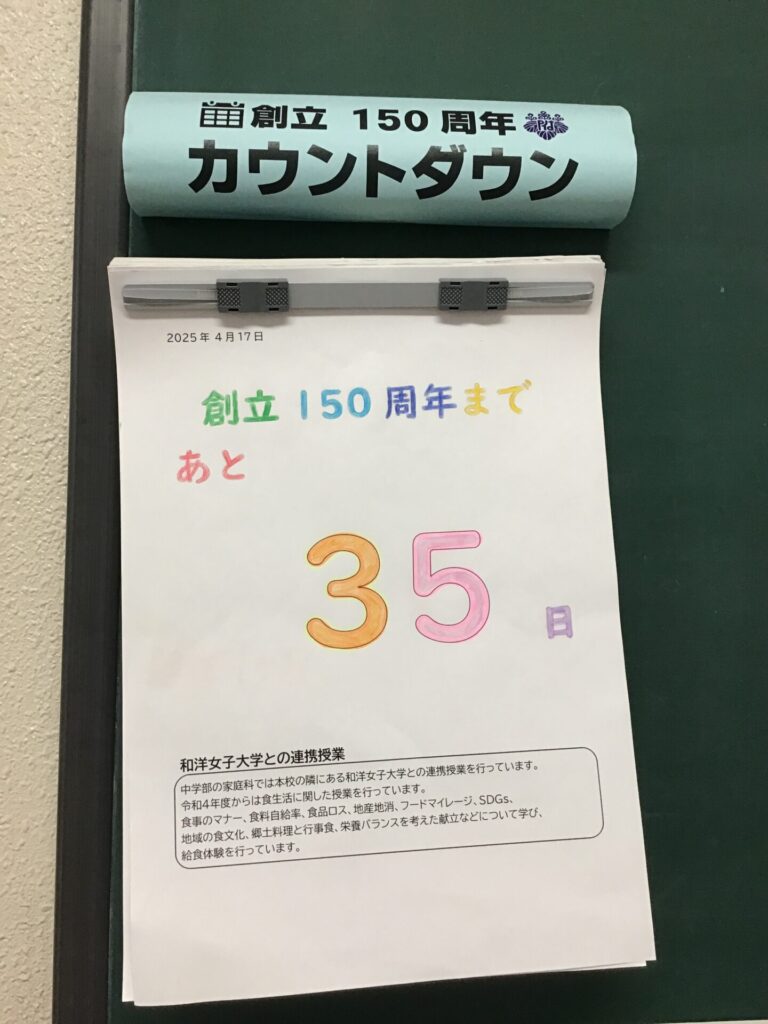 創立 150 周年
カウントダウン
2025年 4月17日
創立 150 周年まで
あと
35
日
和洋女子大学との連携授業
中学部の家庭科では本校の隣にある和洋女子大学との連携授業を行っています。
令和4年度からは食生活に関した授業を行っています。
食事のマナー、食料自給率、食品ロス、地産地消、フードマイレージ、SDGs、
地域の食文化、郷土料理と行事食、栄養バランスを考えた献立などについて学び、
給食体験を行っています。